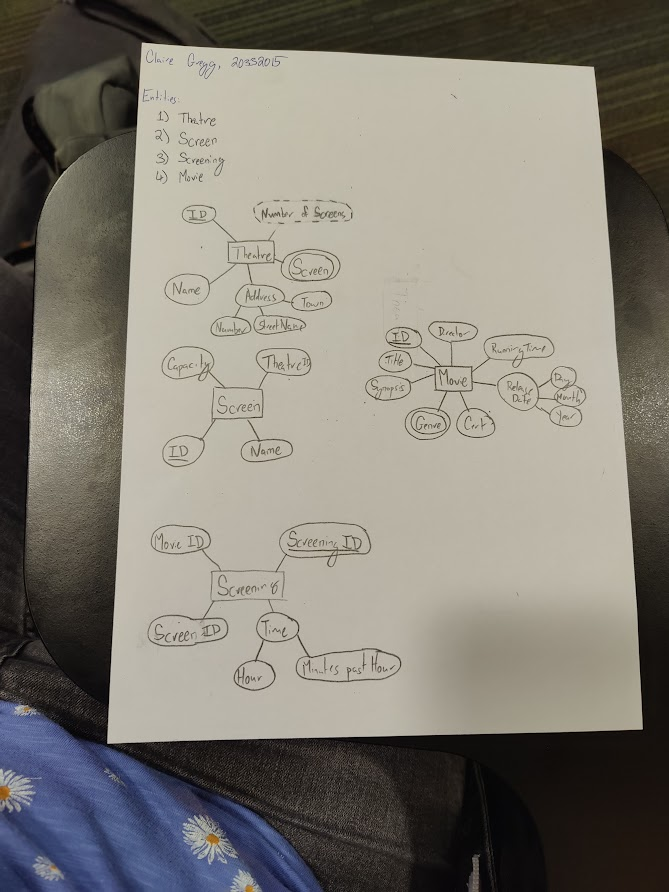 Claire Gregg, 20332015
Entities:
1) Theatre
2) Screen
3) Screening
4) Movie
ID
Number of Screens
Theatre
Screen
Name
Address
Town
Number
Street Name
Capacity
Theatre ID
Screen
ID
Name
ID
Director
Running Time
Title
Movie
Synopsis
Release
Date
Day
Month
Year
Genre
Cert
Movie ID
Screening ID
Screening
Screen ID
Time
Hour
Minutes past Hour